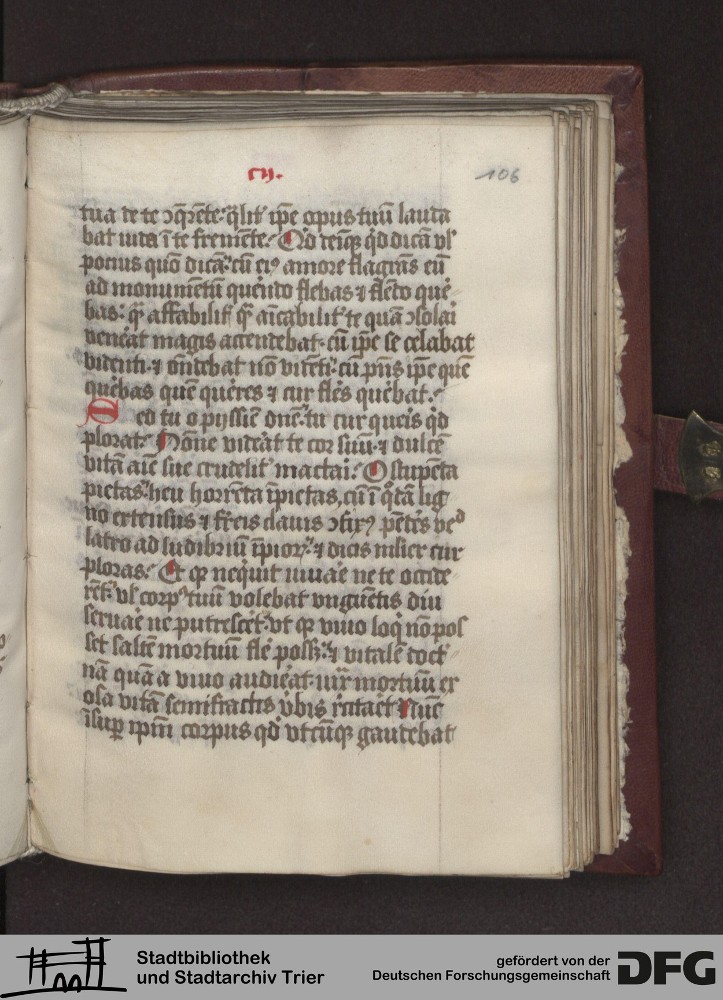 cij.
106
tua de te ɔq̄rēte: q̄lit' ip̄e opus tuū lauda
bat uita ī te fremēte. Qd deniq̄ qd dicā vl'
pocius quō dicā: cū eiꝰ amore flagrās eū
ad monumētū querēdo flebas ⁊ flēdo que
bas: affabilit' amicabilit' te quā ɔsolat'
veneāt magis accendebat. cū ip̄e se celabat
videnti. ⁊ oñdebat nō vidēti. cū p̄ns ip̄e quē
quebas quē queres ⁊ cur fles quebat.
Sed tu o pijssie dn̄e. tu cur queis qd
plorat. Nōne videāt te cor suū. ⁊ dulcē
vitā aīe sue crudelit' mactari. O stupēda
pietas. heu horrēda īpietas, cū ī lig
no extensus ⁊ ferreis clauis ɔfixꝰ pēdēs
latro ad ludibriū īpiorꝝ. ⁊ dicis mlier cur
ploras. Et q̄ nequit iuuare ne te occide
rēt. vl' corpꝰ tuū volebat vnguētis diu
seruare ne putresceret. vt q̄ viuo loqi nō pos
set saltē mortuū fle' poss. ⁊ vitale doct'
nā quā a viuo audierat. iux mortuū ex
osa vitā semifractis vbis rutaēt. Nūc
īsup̄ ip̄m corpus qd vtcūq̄ gaudebat
Stadtbibliothek
und Stadtarchiv Trier
gefördert von der
Deutschen Forschungsgemeinschaft
DFG